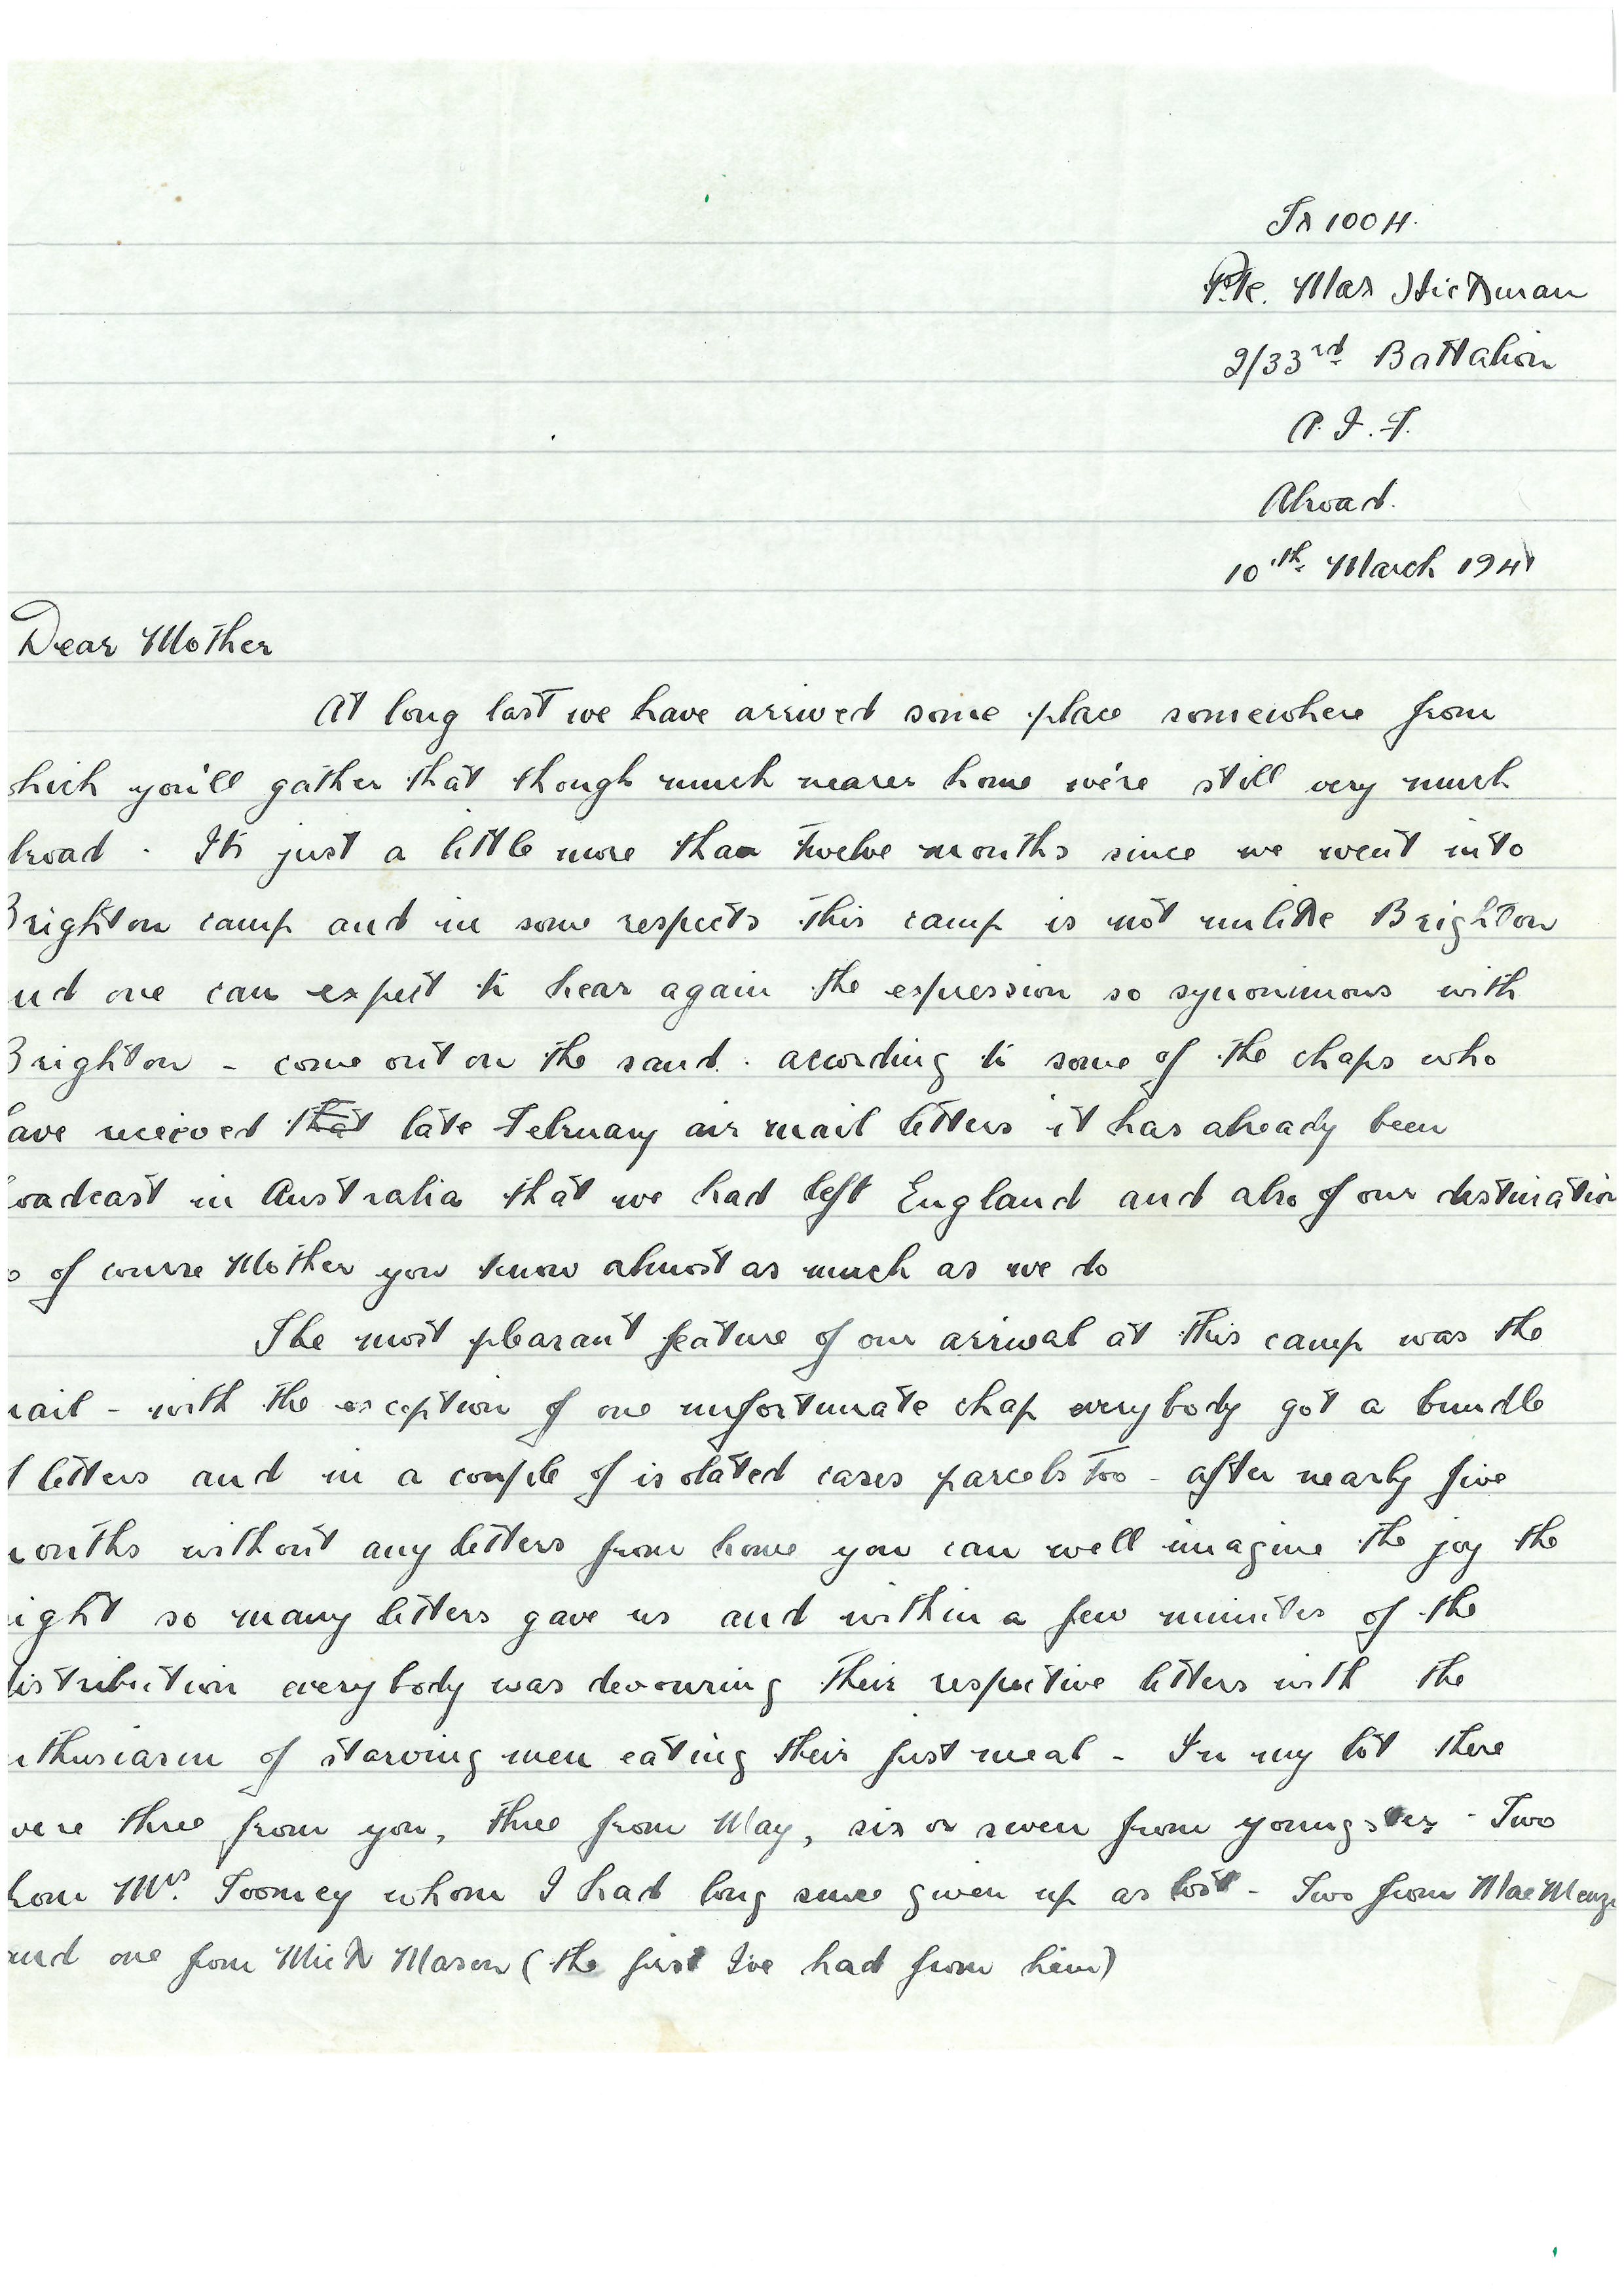 Tx 1004.
Pte. Max Hickman
2/33rd Battalion
A. I. F.
Abroad.
10th March 1941
Dear Mother
At long last we have arrived some place somewhere from
hich you'll gather that though much nearer home we're still very much
broad. It's just a little more than twelve months since we went into
Brighton camp and in some respects this camp is not unlike Brighton
nd one can expect to hear again the expression so synonimous with
Brighton - come out on the sand. according to some of the chaps who
ave recieved that late February air mail letters it has already been
oadcast in Australia that we had left England and also of our destination
o of course Mother you know almost as much as we do
The most pleasant feature of our arrival at this camp was the
ail - with the exception of one unfortunate chap everybody got a bundle
f letters and in a couple of isolated cases parcels too - after nearly five
onths without any letters from home you can well imagine the joy the
ight so many letters gave us and within a few minutes of the
distribution everybody was devouring their respective letters with the
nthusiasm of starving men eating their first meal - In my lot there
were three from you, three from May, six or seven from youngster - Two
from Mrs. Toomey whom I had long since given up as lost - Two from Mac Menzi
and one from Mick Mason (the first I've had from him)